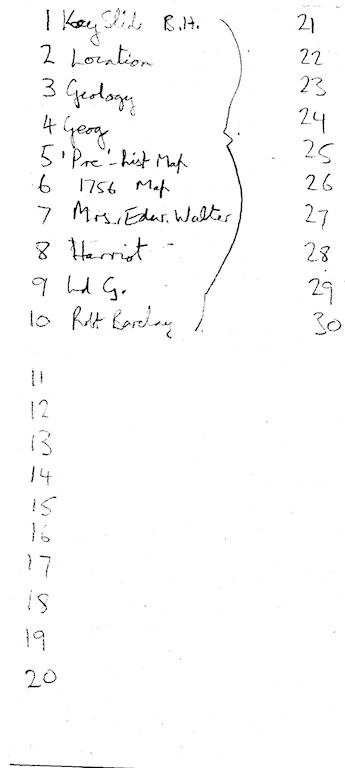 1 Key Slid B.H.
2 Location
3 Geology
4 Geog
5 'Pre'-hist Map
6 1756 Map
7 Mrs. Edw. Walter
8 Harriot -
9 Ld G.
10 Robt Barclay
11
12
13
14
15
16
17
18
19
20
21
22
23
24
25
26
27
28
29
30